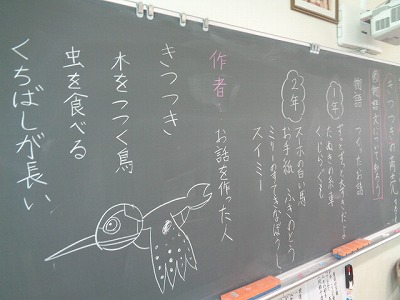 きつつきの商売
物語文について知ろう
物語 つくったお話
1年
ずうっと、ずっと、大すきだよ
たぬきの糸車
くじらぐも
2年
スーホの白い馬
お手紙 ふきのとう
ミリーのすてきなぼうし
スイミー
作者 お話を作った人
きつつき
木をつつく鳥
虫を食べる
くちばしが長い